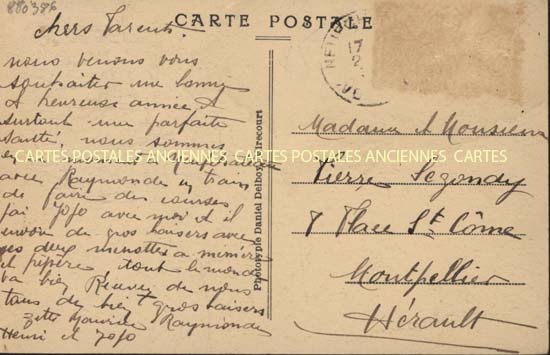 880386
CARTE POSTALE
chers Parents
nous venons vous
souhaiter une bonne
& heureuse année &
surtout une parfaite
santé, nous sommes
en
CARTES POSTALES ANCIENNES CARTES POSTALES ANCIENNES CARTES
avec Raymonde en train
de faire des courses
j'ai Jojo avec moi et il
envoie de gros baisers avec
ses deux menottes a mémère
et pépère tout le monde
va bien Recevez de nous
tous de bien gros baisers
Maurice Raymonde
Henri et Jojo
Phototypie Daniel Delboy, Mirecourt
17
2
Madame et Monsieur
Pierre Segondy
8 Place St Côme
Montpellier
Hérault